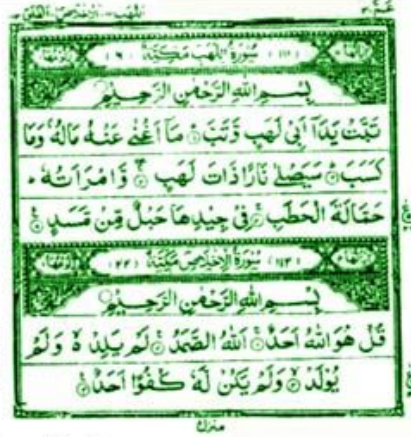 سُوْرَةُ اللَّهَبِ مَكِّيَّةٌ
بِسْمِ اللهِ الرَّحْمٰنِ الرَّحِيْمِ
تَبَّتْ يَدَآ اَبِیْ لَهَبٍ وَّتَبَّ مَآ اَغْنٰی عَنْهُ مَالُهٗ وَمَا
كَسَبَ سَيَصْلٰی نَارًا ذَاتَ لَهَبٍ وَّامْرَاَتُهٗ
حَمَّالَةَ الْحَطَبِ فِیْ جِيْدِهَا حَبْلٌ مِّنْ مَّسَدٍ
سُوْرَةُ الْاِخْلَاصِ مَكِّيَّةٌ
بِسْمِ اللهِ الرَّحْمٰنِ الرَّحِيْمِ
قُلْ هُوَ اللهُ اَحَدٌ اَللهُ الصَّمَدُ لَمْ يَلِدْ ە وَلَمْ
يُوْلَدْ وَلَمْ يَكُنْ لَّهٗ كُفُوًا اَحَدٌ
منزل